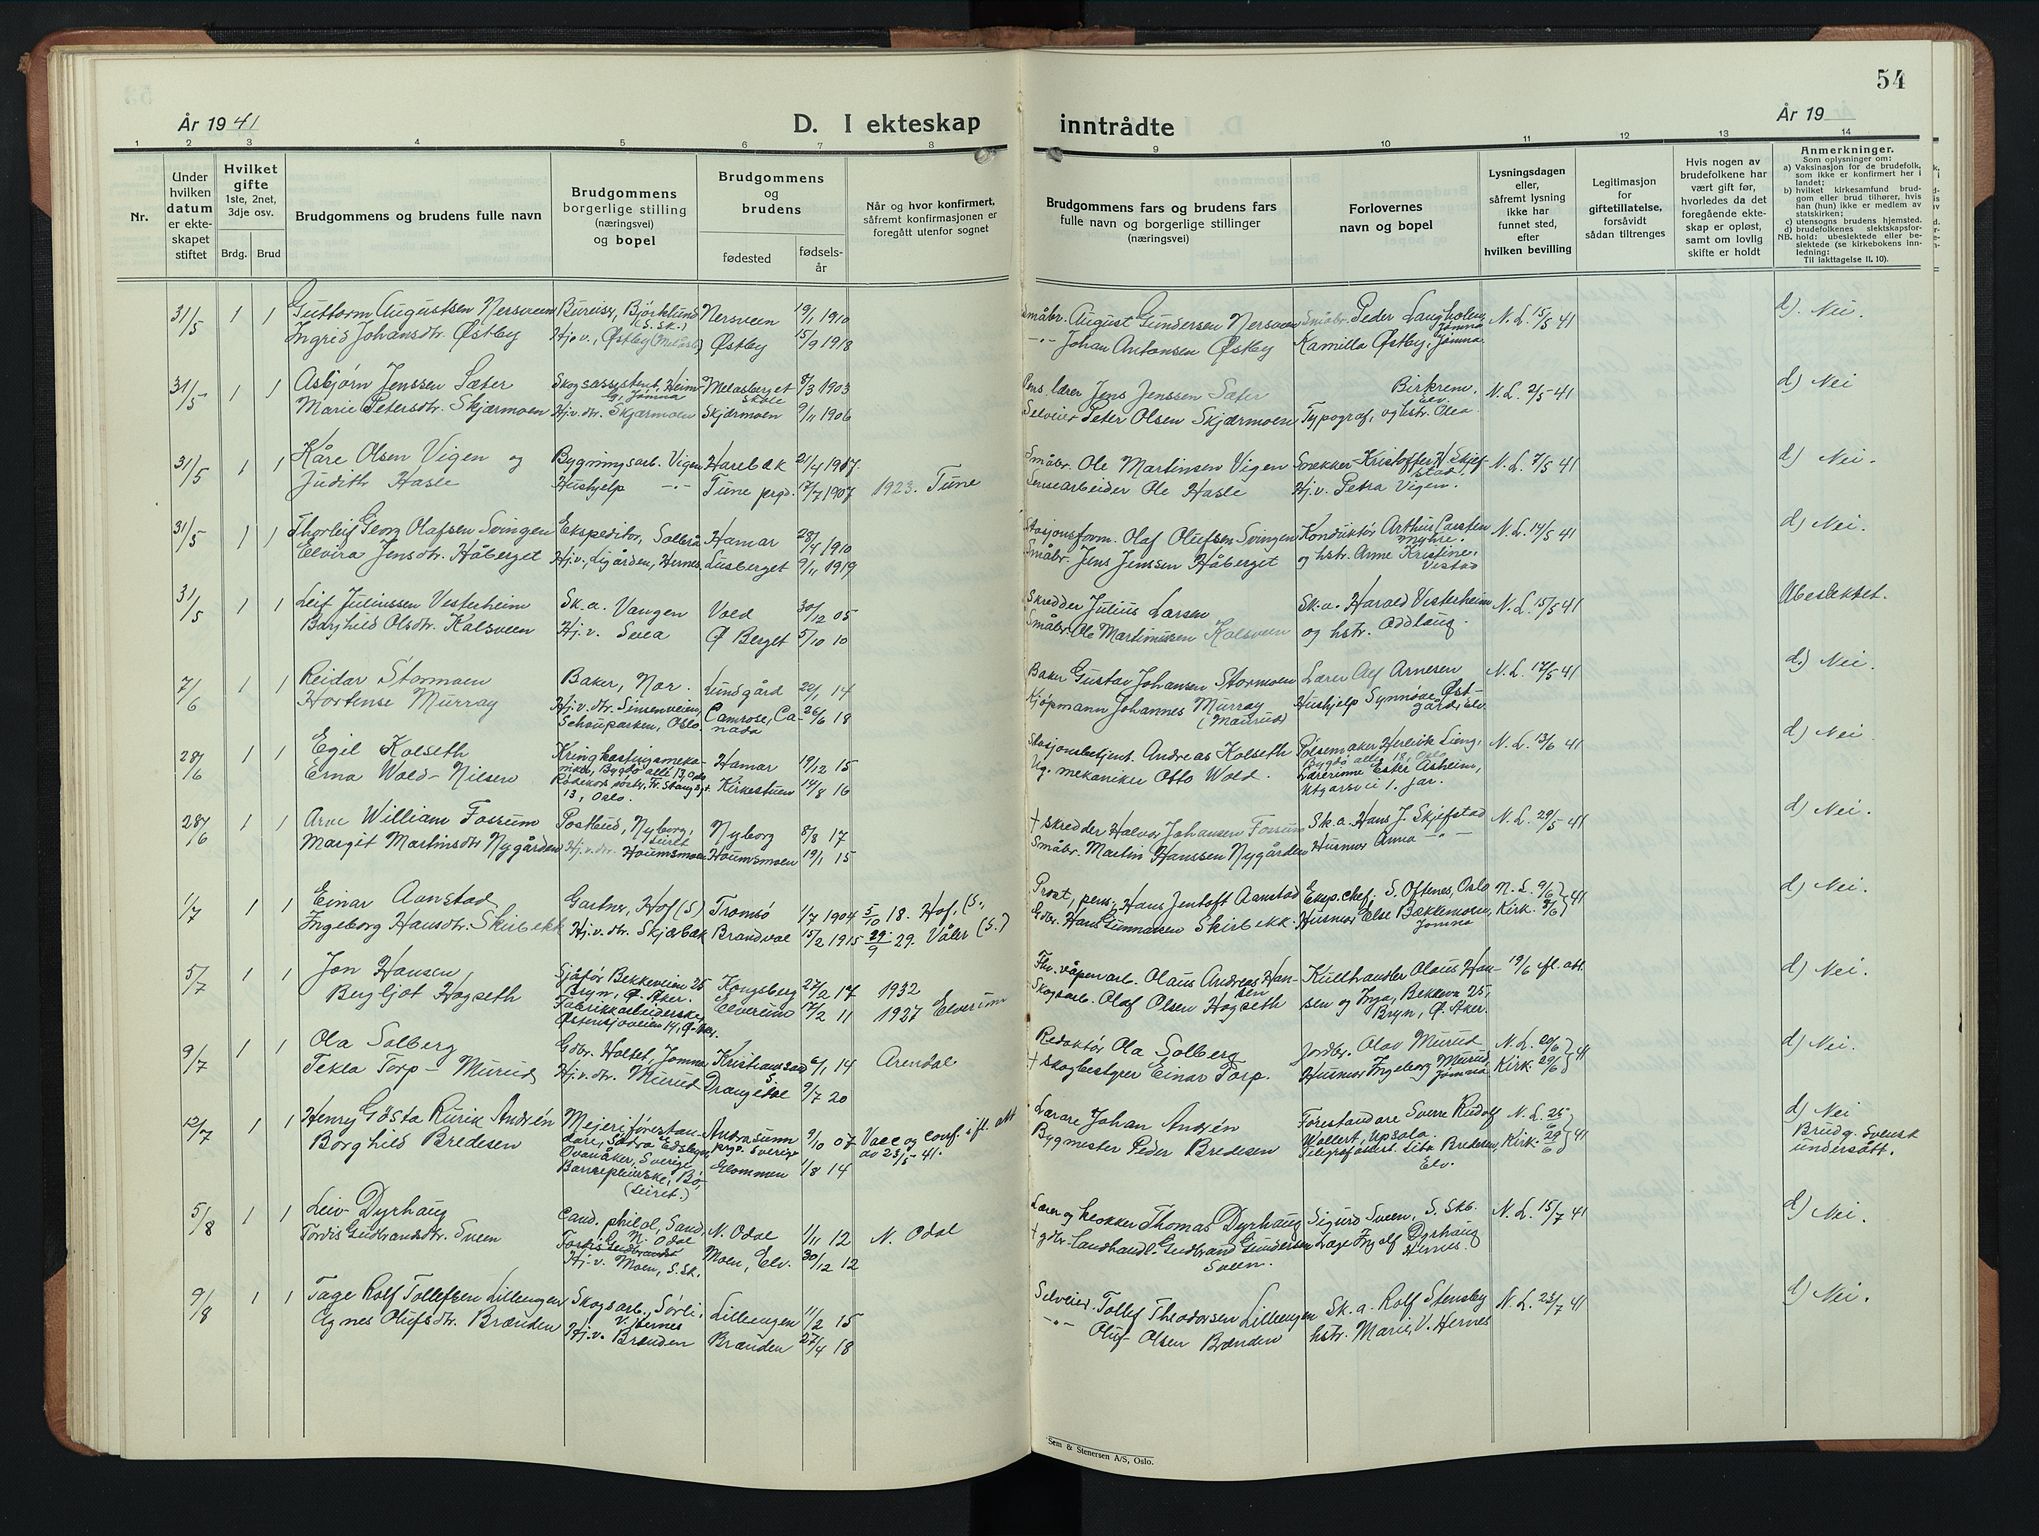 54
År 1941
D. I ekteskap inntrådte
År 19
1 2 3 4 5 6 7 8 9 10 11 12 13 14
Nr.
Under hvilken datum er ekteskapet stiftet
Hvilket gifte 1ste, 2net, 3dje osv.
Brdg. Brud
Brudgommens og brudens fulle navn
Brudgommens borgerlige stilling (næringsvei) og bopel
Brudgommens og brudens
fødested
fødselsår
Når og hvor konfirmert, såfremt konfirmasjonen er foregått utenfor sognet
Brudgommens fars og brudens fars fulle navn og borgerlige stillinger (næringsvei)
Forlovernes navn og bopel
Lysningsdagen eller, såfremt lysning ikke har funnet sted, efter hvilken bevilling
Legitimasjon for giftetillatelse, forsåvidt sådan tiltrenges
Hvis nogen av brudefolkene har vært gift før, hvorledes da det foregående ekteskap er opløst, samt om lovlig skifte er holdt
Anmerkninger.
Som oplysninger om:
a) Vaksinasjon for de brudefolk, som ikke er konfirmert her i landet;
b) hvilket kirkesamfund brudgom eller brud tilhører, hvis han (hun) ikke er medlem av statskirken;
c) utensogns brudens hjemsted.
d) brudefolkenes slektskapsforhold: ubeslektede eller beslektede (se kirkebokens innledning:
NB. Til iakttagelse II. 10).
31/5 1 1 Guttorm Augustsen Nersveen Bureiser, Bjørklund (S.Sk.) Nersveen 19/1 1910 Småbr. August Gundersen Nersveen Småbr. Peder Langholen, Jømna N.L. 15/5 41 d). Nei.
Ingrid Johansdtr. Østby Hjv., Østby Østby 15/9 1918 -"- Johan Antonsen Østby Kamilla Østby, Jømna.
31/5 1 1 Asbjørn Jenssen Sæter Skogsassistent, Heim- Melåsberget skole 8/3 1903 Pens. lærer Jens Jenssen Sæter Birkrem, Elv. N.L. 2/5-41 d) Nei
Marie Petersdtr. Skjærmoen Hj.v.dtr. Skjærmoen Skjærmoen 9/11 1906 Selveier Peter Olsen Skjærmoen Typograf, og hstr. Olea
31/5 1 1 Kåre Olsen Vigen og Bygningsarb. Vigen Harebæk 21/4 1907 Småbr. Ole Martinsen Vigen Snekker Kristoffer H. Skjefstad. N.L. 7/5 41 d) Nei.
Judith Hasle Hushjelp -"- Tune prgd. 17/7 1907 1923. Tune Ole Hasle Hj.v. Petra Vigen.
31/5 1 1 Thorleif Georg Olafsen Svingen Ekspeditør, Solbrå Hamar 28/4 1910 Stasjonsform. Olaf Olufsen Svingen Konduktør Arthur Carsten Myhre. N.L. 14/5 41 d) Nei.
Elvira Jensdtr. Håberget Hj.v., Ligården, Hernes Lusberget 9/11 1919 Småbr. Jens Jenssen Håberget og hstr. Anne Kristine, Vestad
31/5 1 1 Leif Juliussen Vesterheim Sk.a. Vangen Vold 30/12 05 Skredder Julius Larsen Sk.a. Harald Vesterheim N.L. 15/5 41 Ubeslektet.
Borghild Olsdtr. Kalsveen Hj.v. Svea Ø Berget 5/10 10 Småbr. Ole Martinussen Kalsveen og hstr. Oddlaug.
7/6 1 1 Reidar Stormoen Baker, Nor. Lundgård 22/1 14 Baker Gustav Johansen Stormoen Lærer Alf Arnesen N.L. 17/5 41 d.) Nei.
Hortense Murray Hj.v.dtr. Sinsenveien, Schouparken, Oslo. Camrose, Canada 26/6 18 Kjøpmann Johannes Murray (Maurud) Hushjelp Synnøve Østgård, Elv.
28/6 1 1 Egil Kolseth Kringkastingsmekaniker, Bygdø alle 13, Oslo Hamar 19/12 15 Stasjonsbetjent. Andreas Kolseth Pølsemaker Henrik Lieng, Bygdø alle 18, Oslo N.L. 13/6 41 d) Nei.
Erna Wold-Nilsen 13, Oslo. Kirkestuen 14/8 16 Vg. mekaniker Otto Wold. Lærerinne Ester Åsheim,
28/6 1 1 Arve William Fossum Postbud, Nyborg, Leiret Nyborg 8/8 17 + skredder Halvor Johansen Fossum Sk.a. Hans J. Skjefstad N.L. 29/5 41 d) Nei.
Margit Martinsdtr Nygården Hj.v.dtr. Houmsmoen Houmsmoen 19/1 15 Småbr. Martin Hanssen Nygården Husmor Anna -"-
1/7 1 1 Einar Aanstad Gartner, Hof (S) Tromsø 1/7 1904 5/10 18. Hof, (S., Prost, pens., Hans Jentoft Aanstad Eksp.chef. S. Oftenes, Oslo N.L. 9/6 41 d) Nei.
Ingeborg Hansdtr. Skirbekk Hj.v.dtr. Skjæbæk Brandval 15/2 1915 29/9 29. Våler (S.) Gbr. Hans Gunnarsen Skirbekk Husmor Else Bækkemoen, Jømna Kirk.
5/7 1 1 Jon Hansen, Sjåfør Bekkeveien 25 Bryn, Ø. Aker. Kongsberg 27/2 17 1932 Fhv. våpenarb. Olaus Andreas Hansen Kullhandler Olaus Hansen og Inga, Bekkevn 25, Bryn, Ø. Aker. 19/6 fl. att. d) Nei.
Bergljot Hogseth Fabrikkarbeiderske, Østensjøveien 14, Ø. Aker. Elverum 17/2 11 1927 Elverum Skogsarb. Olaf Olsen Hogseth
9/7 1 1 Ola Solberg Gbr. Holtet, Jømna Kristiansand S 6/1 14 Arendal Redaktør Ola Solberg Jordbr. Olav Murud N.L. 20/6 41 d) Nei.
Tekla Torp-Murud Hj.v.dtr. Murud Drangedal 9/7 20 + skogbestyrer Einar Torp. Husmor Ingeborg Murud, Jømna Kirk. 29/6
12/7 1 1 Henry Gösta Rurik Andrén Mejeriföreståndare, Södra Edsbyn, Ovanåker, Sverige Andrasunn prgv. Sverige 9/10 07 Vacc og conf. ifl. att av 23/5-41. Lärare Johan Andrén Föreståndare Sverre Rudolf Wallert, Upsala. N.L. 26/6 41 d) Nei
Borghild Bredesen Barnepleierske, Bo, (Leiret.) Glommen 1/8 14 Bygmester Peder Bredesen Telegrafassist. Lita Bredesen, Elv. Kirk. 29/6 Brudg. Svensk undersått.
5/8 1 1 Leiv Dyrhaug Cand. philol, Sand, N. Odal N. Odal 1/11 12 N. Odal Lærer og klokker Thomas Dyrhaug Sigurd Sveen, S. Skb. N.L. 15/7 41 d) Nei.
Tordis Gudbrandsdtr. Sveen Hj.v. Moen, S.Sk. Moen, Elv. 30/12 12 + gbr. Landhandl. Gudbrand Gundersen Sveen. Lage Ingolf Dyrhaug Hernes.
9/8 1 1 Tage Rolf Tollefsen Lillengen Skogsarb., Sørli, V. Hernes Lillengen 11/2 15 Selveier Tollef Theodorsen Lillengen Sk.a. Rolf Stensby N.L. 23/7 41 d) Nei.
Agnes Olufsdtr. Brænden Hj.v. Brænden Brænden 27/4 18 -"- Oluf Olsen Brænden hstr. Marie, V. Hernes
Sem & Stenersen A/S, Oslo.